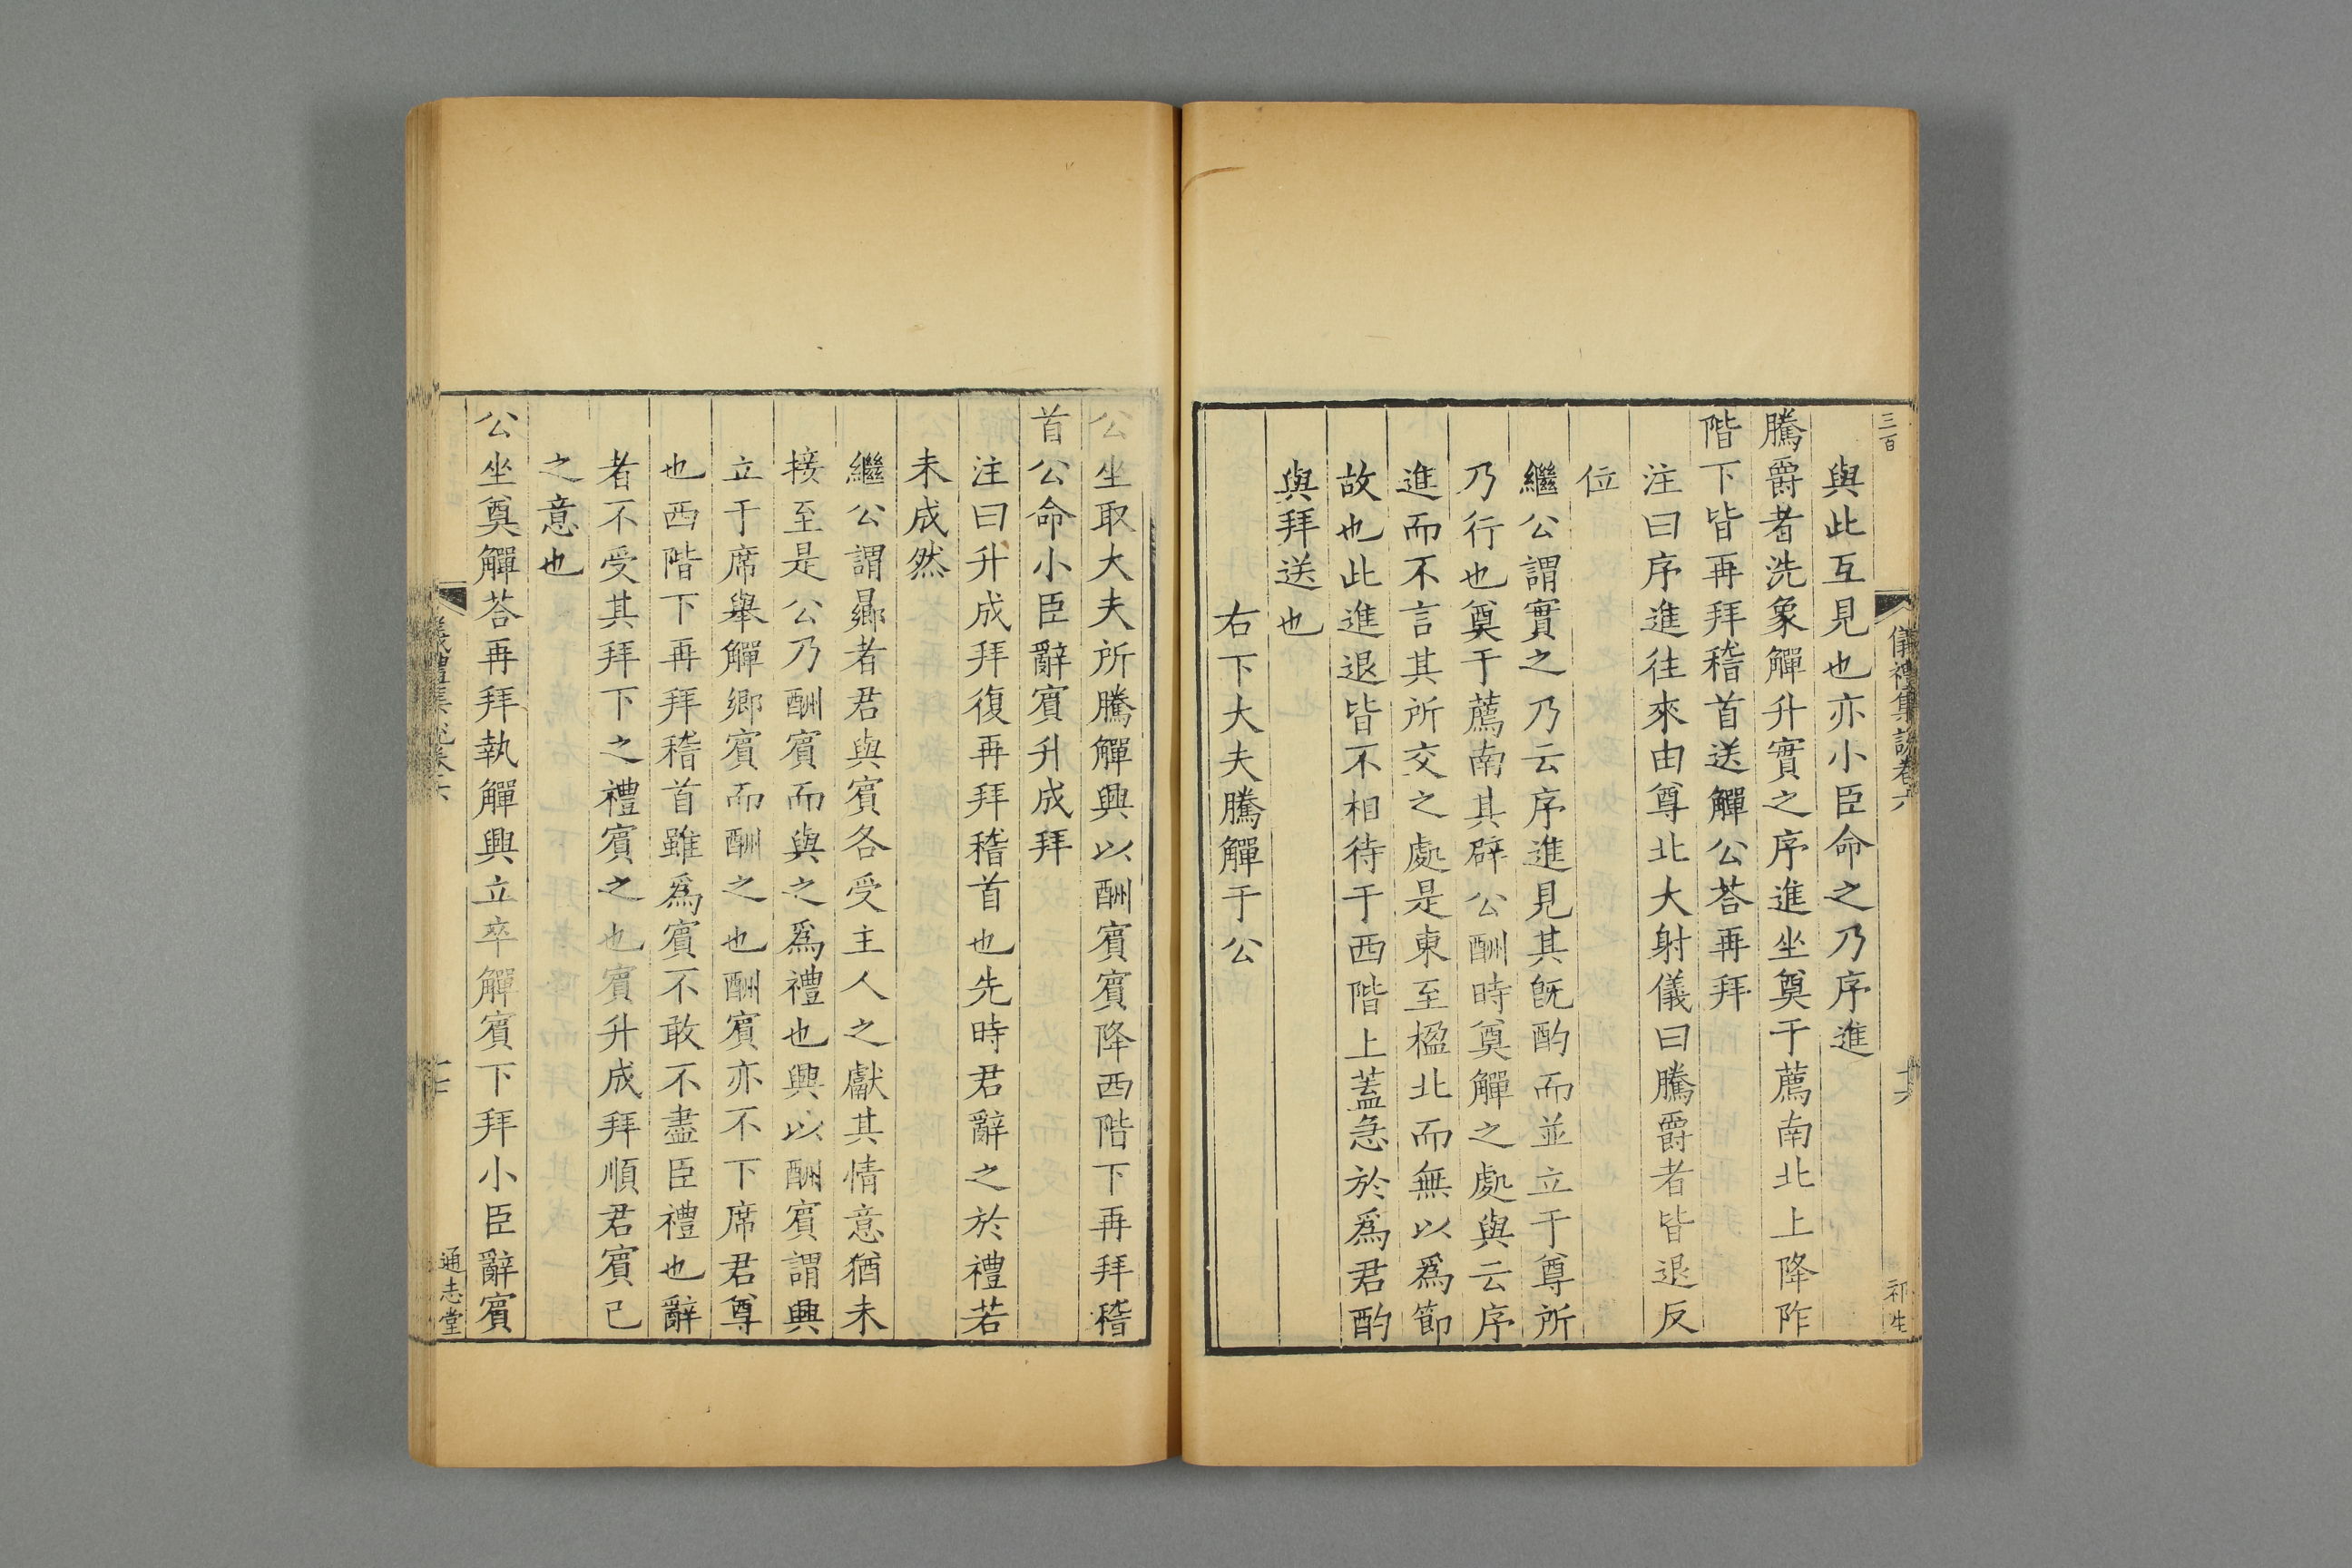 三百
儀禮集說卷六
十六
祁生
與此互見也亦小臣命之乃序進
騰爵者洗象觶升實之序進坐奠于薦南北上降阼
階下皆再拜稽首送觶公荅再拜
注曰序進往來由尊北大射儀曰騰爵者皆退反
位
繼公謂實之乃云序進見其旣酌而並立于尊所
乃行也奠于薦南其辟公酬時奠觶之處與云序
進而不言其所交之處是東至楹北而無以爲節
故也此進退皆不相待于西階上蓋急於爲君酌
與拜送也
右下大夫騰觶于公
公坐取大夫所騰觶興以酬賓賓降西階下再拜稽
首公命小臣辭賓升成拜
注曰升成拜復再拜稽首也先時君辭之於禮若
未成然
繼公謂曏者君與賓各受主人之獻其情意猶未
接至是公乃酬賓而與之爲禮也興以酬賓謂興
立于席舉觶鄉賓而酬之也酬賓亦不下席君尊
也西階下再拜稽首雖爲賓不敢不盡臣禮也辭
者不受其拜下之禮賓之也賓升成拜順君賓己
之意也
公坐奠觶荅再拜執觶興立卒觶賓下拜小臣辭賓
儀禮集說卷六
十七
通志堂